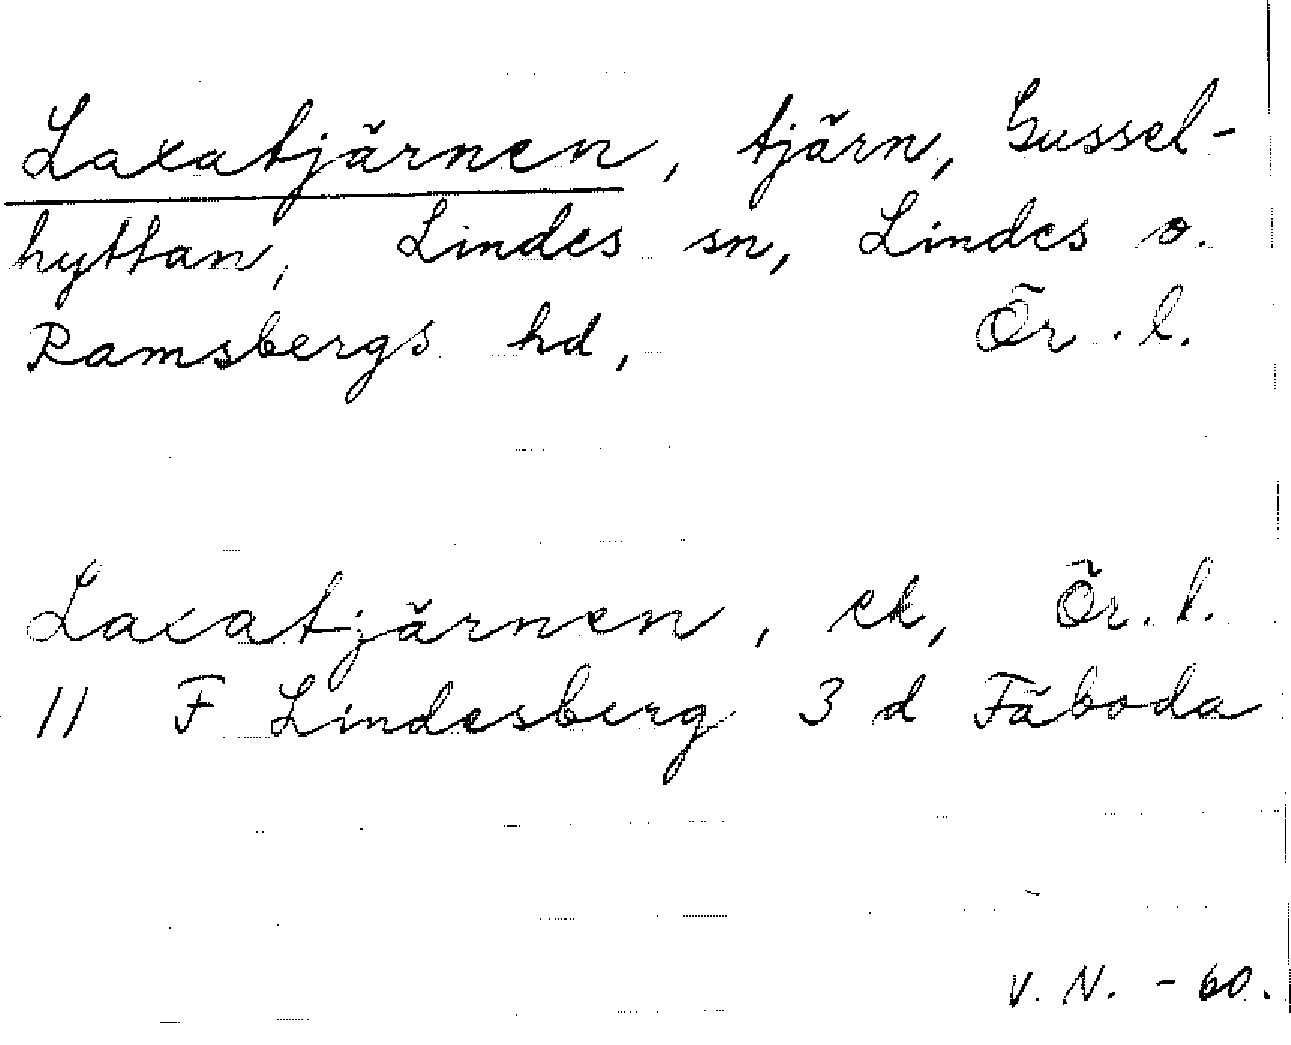 Laxatjärnen, tjärn, Gussel-
hyttan, Lindes sn, Lindes o.
Ramsbergs hd, Ör. l.
Laxatjärnen, ek, Ör. l.
11 F Lindesberg 3 d Fäboda
V. N. - 60.